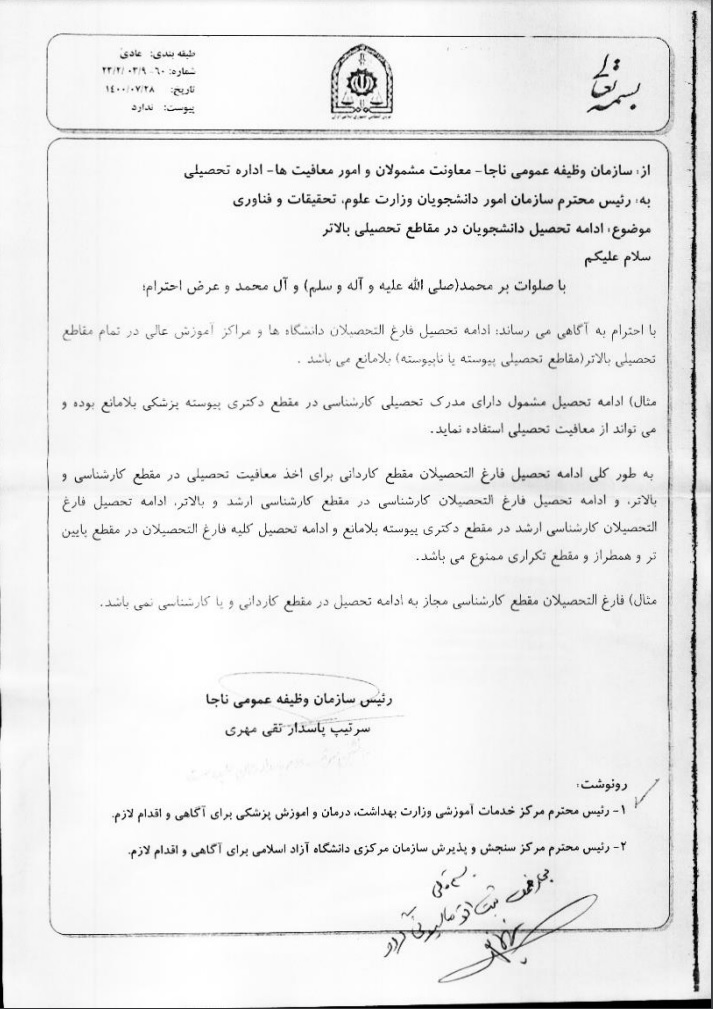 بسمه تعالی
طبقه بندی: عادی
شماره: ۶۰-۲۳/۲/۰۳/۹
تاریخ: ۱۴۰۰/۰۷/۲۸
پیوست: ندارد
از: سازمان وظیفه عمومی ناجا- معاونت مشمولان و امور معافیت ها- اداره تحصیلی
به: رئیس محترم سازمان امور دانشجویان وزارت علوم، تحقیقات و فناوری
موضوع: ادامه تحصیل دانشجویان در مقاطع تحصیلی بالاتر
سلام علیکم
با صلوات بر محمد(صلی الله علیه و آله و سلم) و آل محمد و عرض احترام؛
با احترام به آگاهی می رساند: ادامه تحصیل فارغ التحصیلان دانشگاه ها و مراکز آموزش عالی در تمام مقاطع
تحصیلی بالاتر(مقاطع تحصیلی پیوسته یا ناپیوسته) بلامانع می باشد .
مثال) ادامه تحصیل مشمول دارای مدرک تحصیلی کارشناسی در مقطع دکتری پیوسته پزشکی بلامانع بوده و
می تواند از معافیت تحصیلی استفاده نماید.
به طور کلی ادامه تحصیل فارغ التحصیلان مقطع کاردانی برای اخذ معافیت تحصیلی در مقطع کارشناسی و
بالاتر، و ادامه تحصیل فارغ التحصیلان کارشناسی در مقطع کارشناسی ارشد و بالاتر، ادامه تحصیل فارغ
التحصیلان کارشناسی ارشد در مقطع دکتری پیوسته بلامانع و ادامه تحصیل کلیه فارغ التحصیلان در مقطع پایین
تر و همطراز و مقطع تکراری ممنوع می باشد.
مثال) فارغ التحصیلان مقطع کارشناسی مجاز به ادامه تحصیل در مقطع کاردانی و یا کارشناسی نمی باشد.
رئیس سازمان وظیفه عمومی ناجا
سرتیپ پاسدار تقی مهری
رونوشت:
۱- رئیس محترم مرکز خدمات آموزشی وزارت بهداشت، درمان و اموزش پزشکی برای آگاهی و اقدام لازم.
۲- رئیس محترم مرکز سنجش و پذیرش سازمان مرکزی دانشگاه آزاد اسلامی برای آگاهی و اقدام لازم.